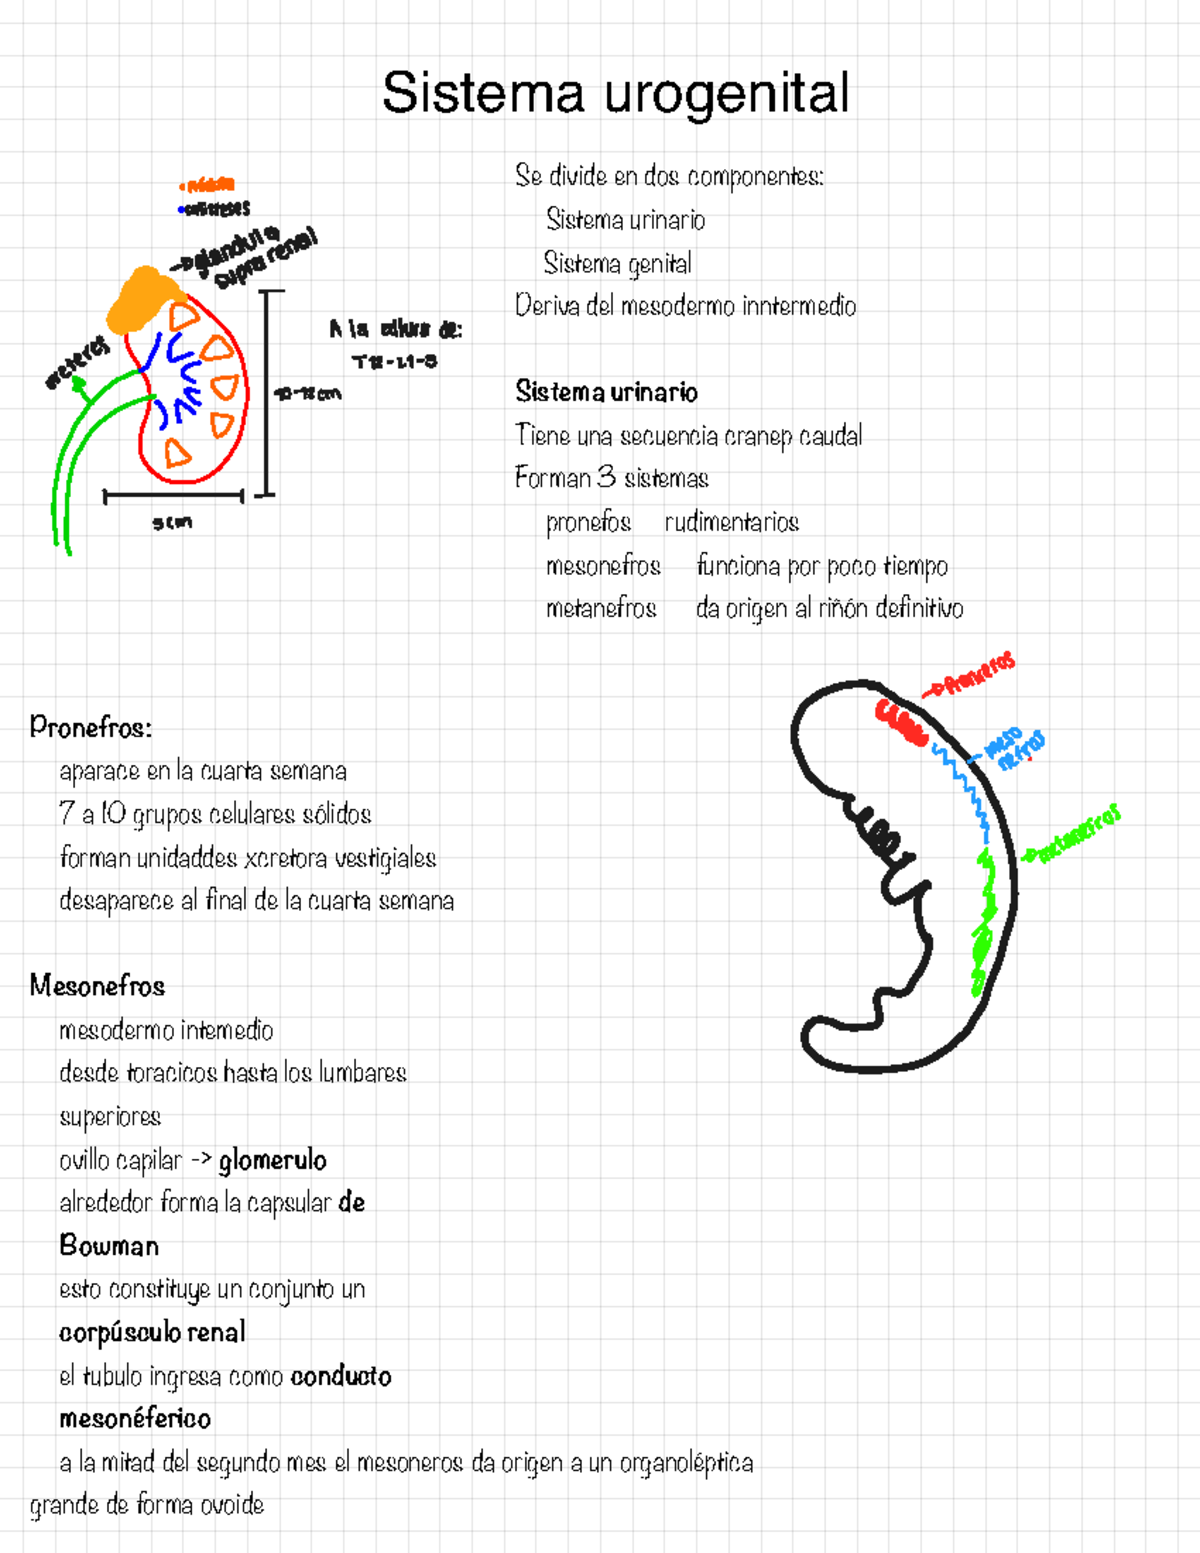 Sistema urogenital
glandula
supra renal
ureteres
A la altura de:
5 cm
Se divide en dos componentes:
Sistema urinario
Sistema genital
Deriva del mesodermo inntermedio
Sistema urinario
Tiene una secuencia cranep caudal
Forman 3 sistemas
pronefos rudimentarios
mesonefros funciona por poco tiempo
metanefros da origen al riñón definitivo
meso
nefros
metanefros
Pronefros:
aparace en la cuarta semana
7 a 10 grupos celulares sólidos
forman unidaddes xcretora vestigiales
desaparece al final de la cuarta semana
Mesonefros
mesodermo intemedio
desde toracicos hasta los lumbares
superiores
ovillo capilar -> glomerulo
alrededor forma la capsular de
Bowman
esto constituye un conjunto un
corpúsculo renal
el tubulo ingresa como conducto
mesonéferico
a la mitad del segundo mes el mesoneros da origen a un organoléptica
grande de forma ovoide